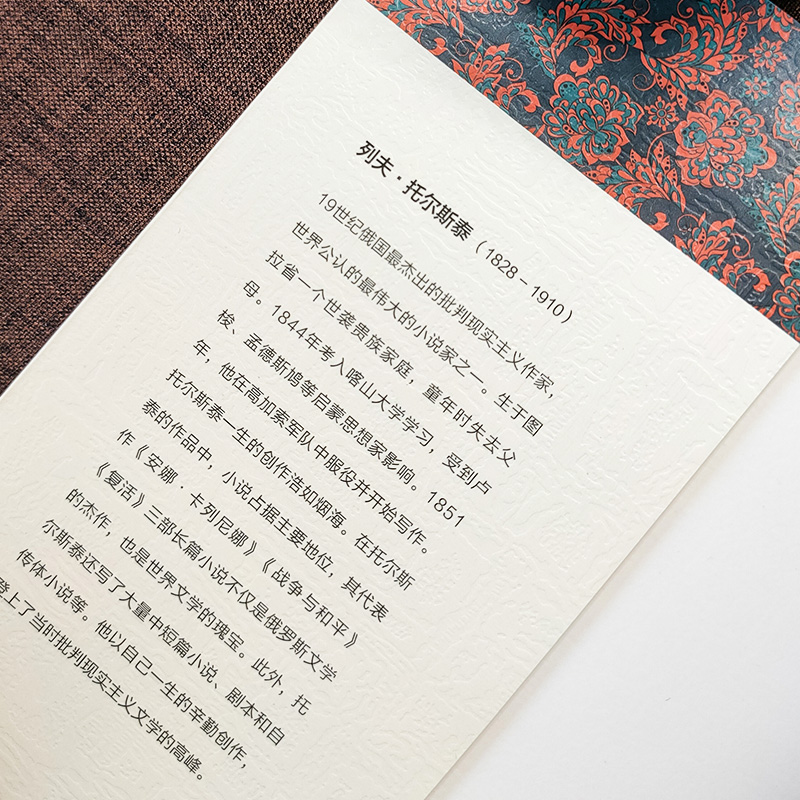 列夫·托尔斯泰（1828-1910）
19世纪俄国最杰出的批判现实主义作家，
世界公认的最伟大的小说家之一。生于图
拉省一个世袭贵族家庭，童年时失去父
母。1844年考入喀山大学学习，受到卢
梭、孟德斯鸠等启蒙思想家影响。1851
年，他在高加索军队中服役并开始写作。
托尔斯泰一生的创作浩如烟海。在托尔斯
泰的作品中，小说占据主要地位，其代表
作《安娜·卡列尼娜》《战争与和平》
《复活》三部长篇小说不仅是俄罗斯文学
的杰作，也是世界文学的瑰宝。此外，托
尔斯泰还写了大量中短篇小说、剧本和自
传体小说等。他以自己一生的辛勤创作，
登上了当时批判现实主义文学的高峰。